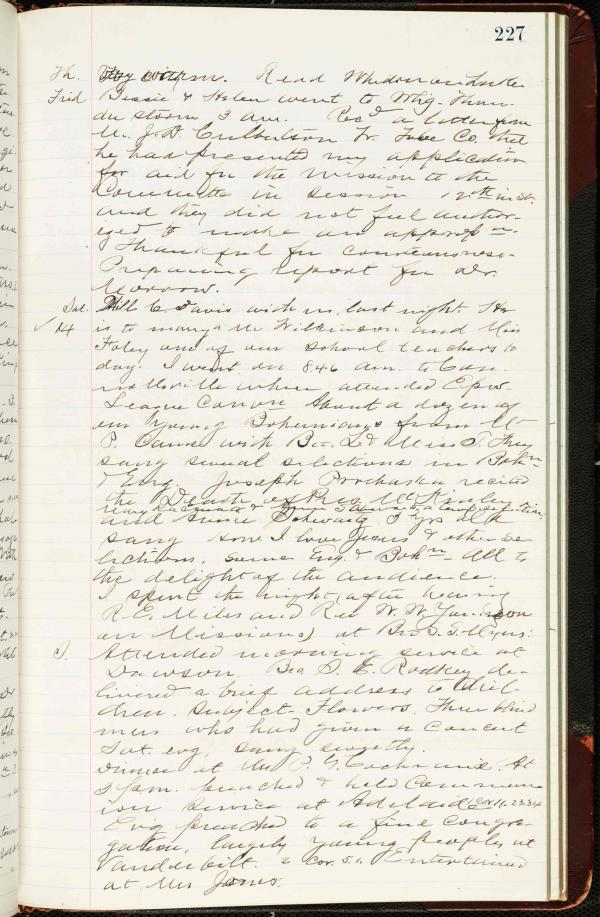 227
Th. Read
Frid Bessie & Helen went to Mtg. Thun-
der storm I am. Recd a letter from
Mr. J. D. Culbertson Tr. Co. that
he had presented my application
for aid for the mission to the
Committee in session 12th inst.
and they did not feel author-
ized to make an approp n.
Thankful for courteousness.
Preparing report for Dr.
Morrow.
Sat. C. Davis with us last night. He
14 is to marry Mr Wilkinson and Miss
Foley one of our school teachers to
day. I went on 8.46 am. to Con-
nellsville where attended Epw.
League Conv. About a dozen of
our young Bohemians from Mt
P. came with Bro. & Miss They
sang several selections in Boh n
& Eng. Joseph Prochaska recited
the Death of Pres. McKinley
and Annie 3 yrs old
sang How I love Jesus & other se-
lections, some Eng. & Boh n All to
the delight of the audience.
I spent the night, (after hearing
R. E. Miles and Rev W. W.
on Missions) at Bro S. G. Myers.
S. Attended morning service at
Dawson. Bro S. E. Rodkey de-
livered a brief address to Chil-
dren. Subject - Flowers. Three blind
men who had given a concert
Sat. evg. sang sweetly.
Dinner at Mr P. G. Cochrans. At
3 pm. preached & held Commun-
ion service at Adelaid Cor 11. 23.34
Evg preached to a fine congre-
gation, largely young people, at
Vanderbilt. 2 Cor. 5.1. Entertained
at Mrs Jones.